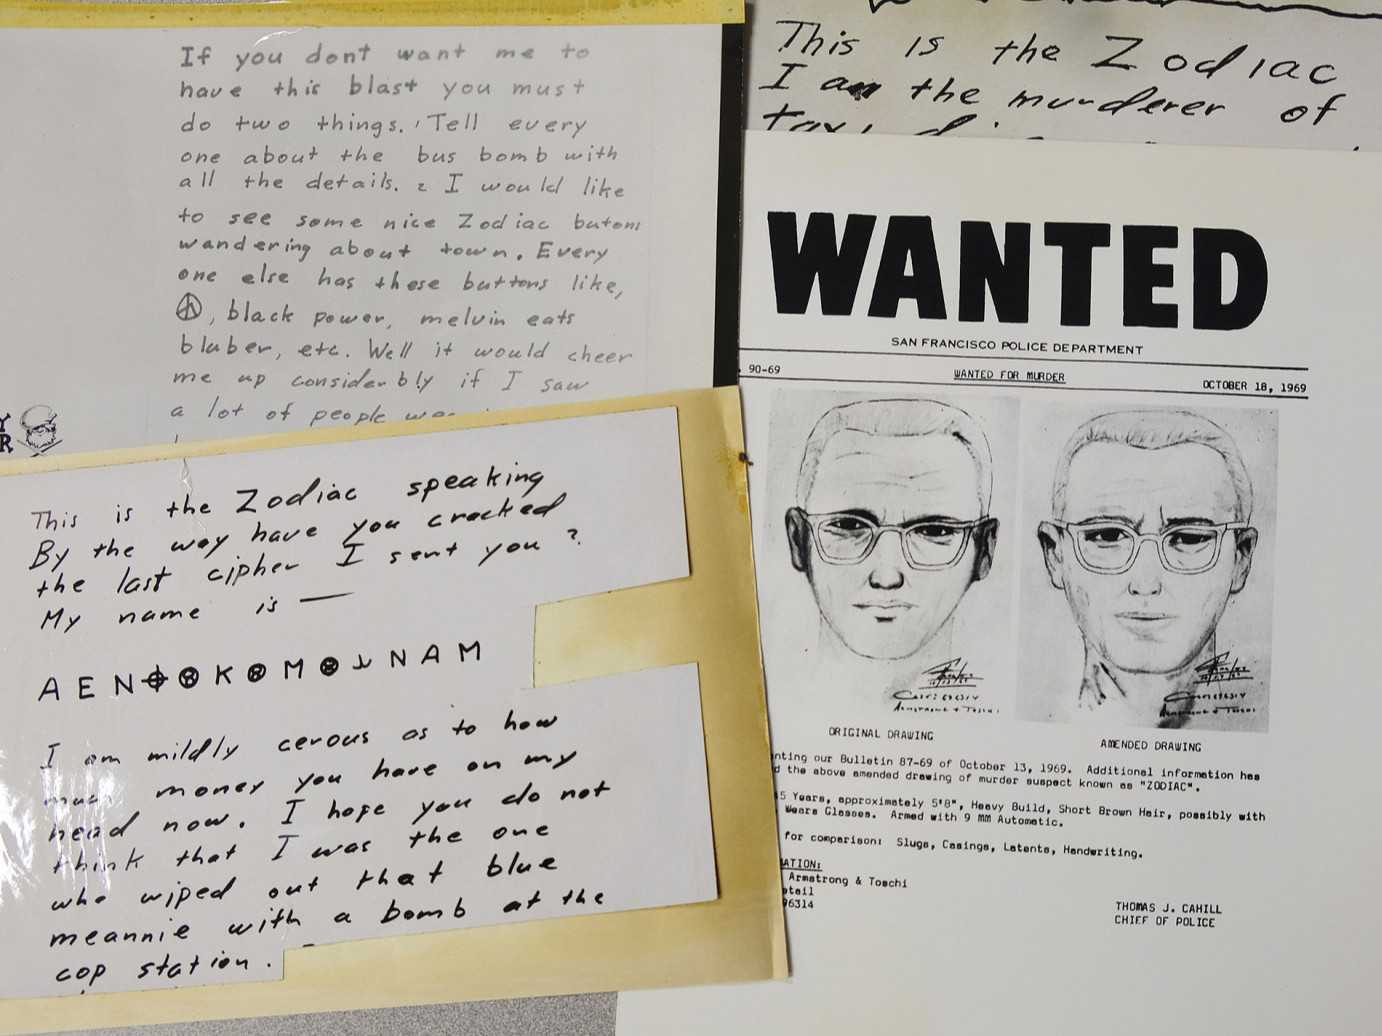 If you dont want me to
have this blast you must
do two things. 1 Tell every
one about the bus bomb with
all the details. 2 I would like
to see some nice Zodiac butons
wandering about town. Every
one else has these buttons like,
, black power, melvin eats
bluber, etc. Well it would cheer
me up considerbly if I saw
a lot of people
This is the Zodiac speaking
By the way have you cracked
the last cipher I sent you ?
My name is —
A E N ⌖ K M N A M
I am mildly cerous as to how
much money you have on my
head now. I hope you do not
think that I was the one
who wiped out that blue
meannie with a bomb at the
cop station.
This is the Zodiac
I am the murderer of
WANTED
SAN FRANCISCO POLICE DEPARTMENT
90-69 WANTED FOR MURDER OCTOBER 18, 1969
ORIGINAL DRAWING AMENDED DRAWING
our Bulletin 87-69 of October 13, 1969. Additional information has
the above amended drawing of murder suspect known as "ZODIAC".
Years, approximately 5'8", Heavy Build, Short Brown Hair, possibly with
Wears Glasses. Armed with 9 MM Automatic.
for comparison: Slugs, Casings, Latents, Handwriting.
Armstrong & Toschi
96314
THOMAS J. CAHILL
CHIEF OF POLICE